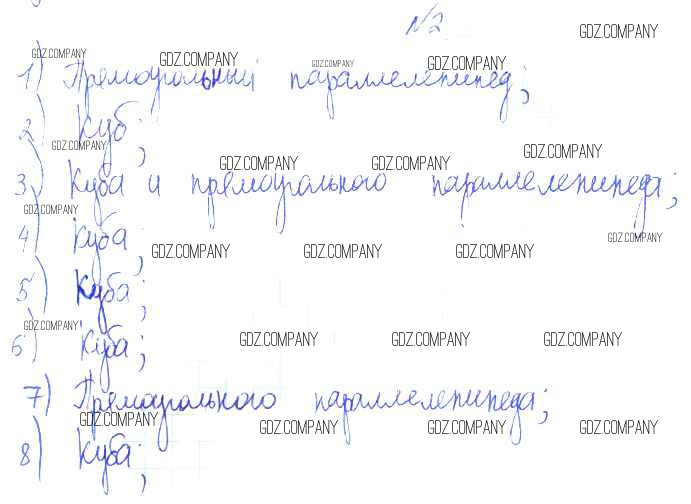 №2
1) Прямоугольный параллелепипед;
2) Куб;
3) Куба и прямоугольного параллелепипеда;
4) Куба;
5) Куба;
6) Куба;
7) Прямоугольного параллелепипеда;
8) Куба;
GDZ.COMPANY GDZ.COMPANY GDZ.COMPANY GDZ.COMPANY GDZ.COMPANY
GDZ.COMPANY GDZ.COMPANY GDZ.COMPANY GDZ.COMPANY
GDZ.COMPANY GDZ.COMPANY GDZ.COMPANY GDZ.COMPANY GDZ.COMPANY
GDZ.COMPANY GDZ.COMPANY GDZ.COMPANY GDZ.COMPANY
GDZ.COMPANY GDZ.COMPANY GDZ.COMPANY GDZ.COMPANY